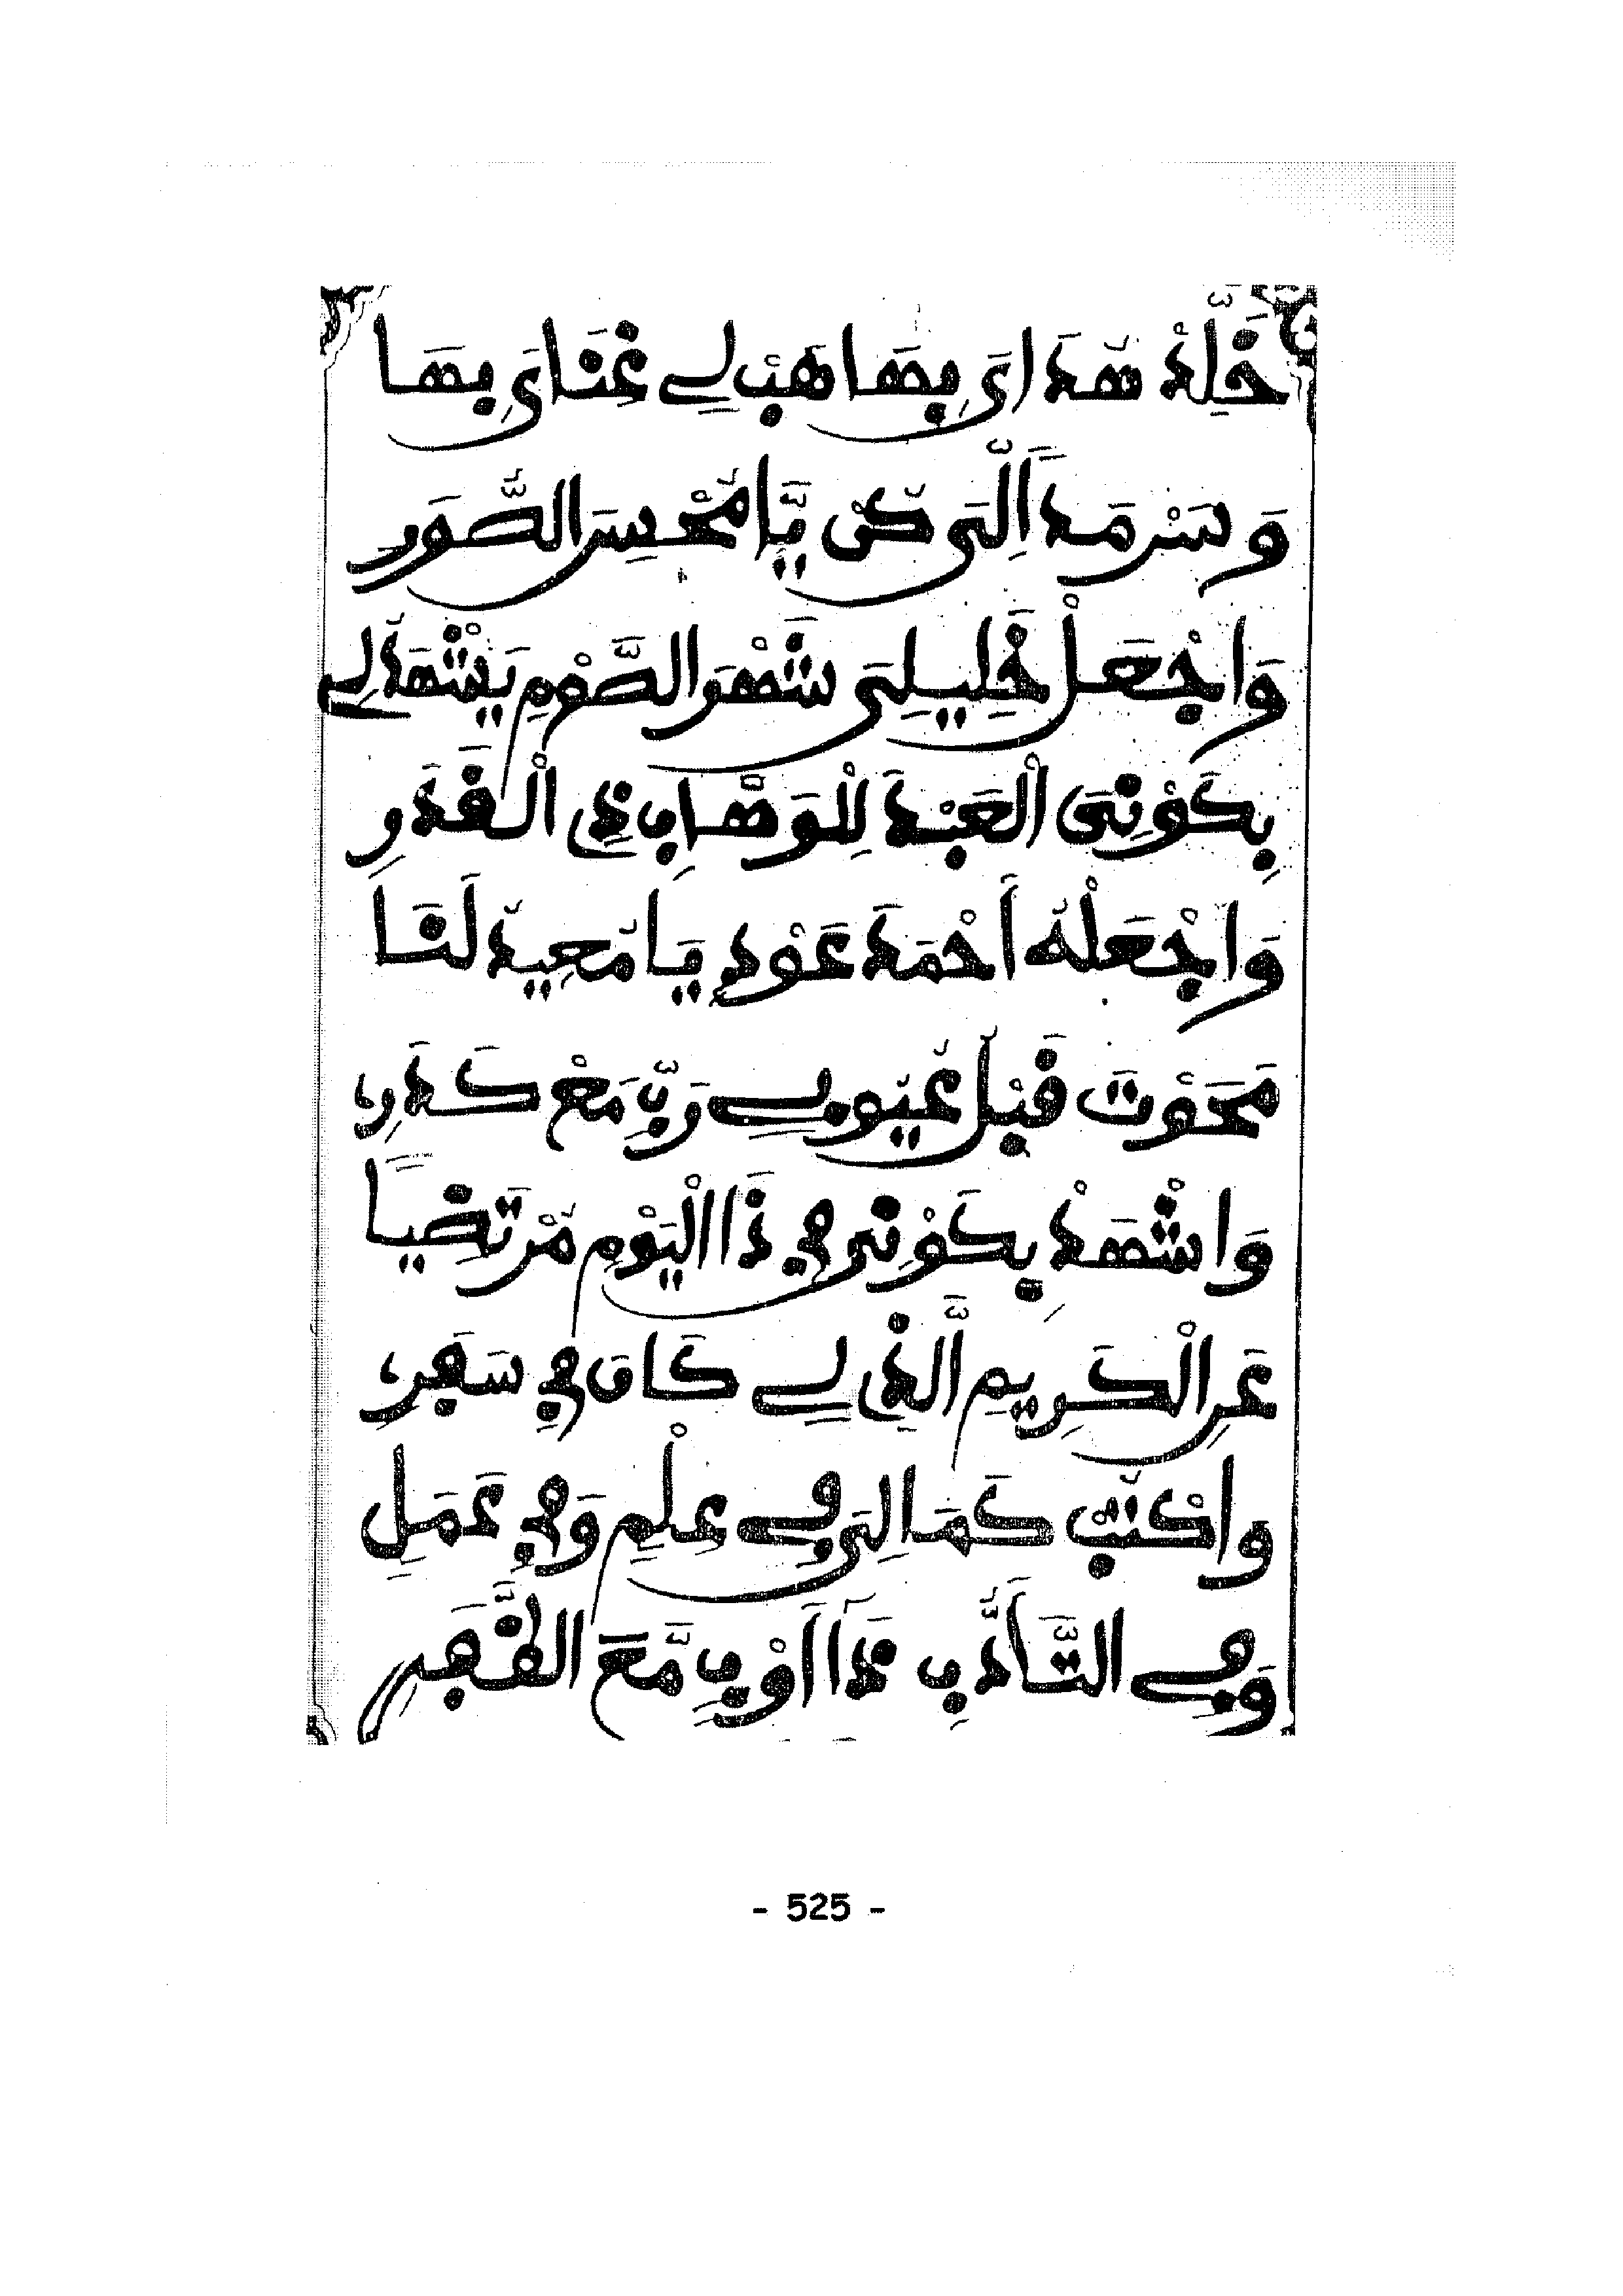 خَلِّدْ هُدَايَ بِهَا هَبْ لِي غِنَايَ بِهَا
وَسَرْمَدًا الَّتِي كُنْ يَّا مُحْسِنَ الصُّوَر
وَاجْعَلْ خَلِيلِيَ شَهْرَ الصَّوْمِ يَشْهَدُ لِي
بِكَوْنِيَ الْعَبْدَ لِلْوَهَّابِ ذِي الْقَدَرِ
وَاجْعَلْهُ أَحْمَدَ عَوْدٍ يَا مُعِيدُ لَنَا
مَحَوْتَ قَبْلُ عُيُوبِي رَبِّ مَعْ كَدَرِ
وَاشْهَدْ بِكَوْنِيَ فِي ذَا الْيَوْمِ مُرْتَضِيًا
عَنِ الْكَرِيمِ الَّذِي لِي كَانَ فِي سَفَرِ
وَاكْتُبْ كَمَالِيَ فِي عِلْمٍ وَفِي عَمَلٍ
وَفِي التَّأَدُّبِ